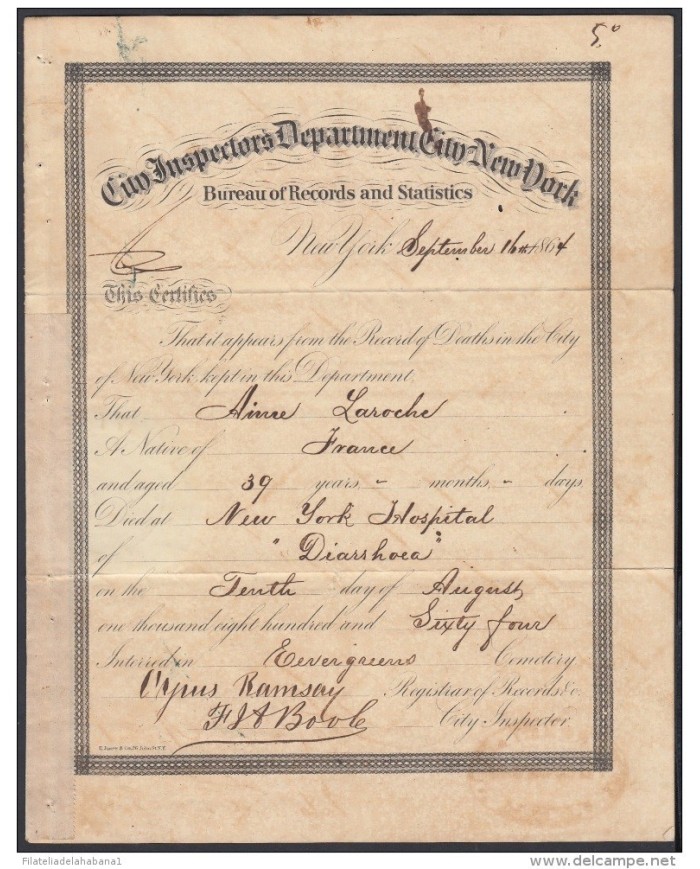 5.⁰
City Inspector's Department, City New York
Bureau of Records and Statistics
New York September 16th 1864
This Certifies
That it appears from the Record of Deaths in the City
of New York, kept in this Department.
That Aime Laroche
A Native of France
and aged 39 years, - months, - days
Died at New York Hospital
of "Diarrhoea"
on the Tenth day of August
one thousand eight hundred and Sixty four
Interred in Evergreens Cemetery
Cyrus Ramsay Registrar of Records &c.
F I A Boole City Inspector.
Filateliadelahabana1
delcampe.net